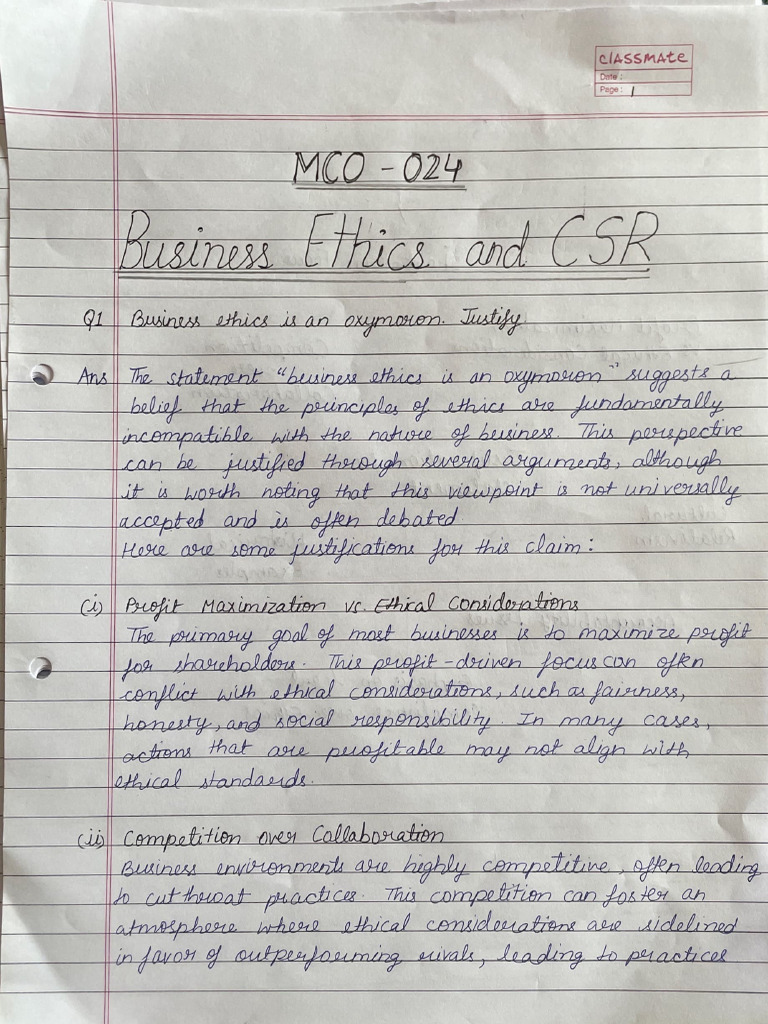 classmate
Date :
Page : 1
MCO - 024
Business Ethics and CSR
Q1 Business ethics is an oxymoron. Justify
Ans The statement "business ethics is an oxymoron" suggests a
belief that the principles of ethics are fundamentally
incompatible with the nature of business. This perspective
can be justified through several arguments, although
it is worth noting that this viewpoint is not universally
accepted and is often debated
Here are some justifications for this claim:
(i) Profit Maximization vs. Ethical Considerations
The primary goal of most businesses is to maximize profit
for shareholders. This profit-driven focus can often
conflict with ethical considerations, such as fairness,
honesty, and social responsibility. In many cases,
actions that are profitable may not align with
ethical standards.
(ii) Competition over Collaboration
Business environments are highly competitive, often leading
to cut throat practices. This competition can foster an
atmosphere where ethical considerations are sidelined
in favor of outperforming rivals, leading to practices